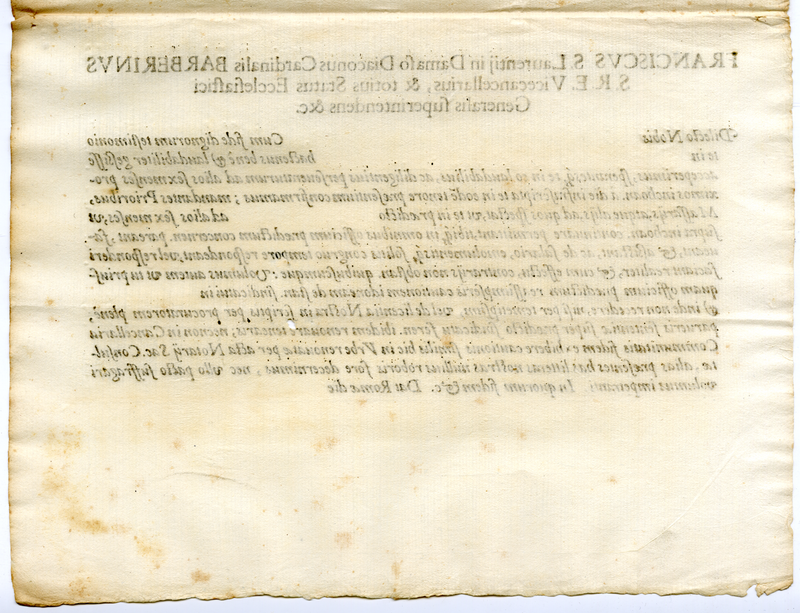 FRANCISCVS S. Laurentij in Damaso Diaconus Cardinalis BARBERINVS
S. R. E. Vicecancellarius, & totius Status Ecclesiastici
Generalis superintendens &c.
Dilecto Nobis Cum fide dignorum testimonio
te in hactenus benè & laudabiliter gessisse
acceperimus, speremusq; te in eo laudabilius, ac diligentius perseueraturum ad alios sex menses pro-
ximos inchoan. à die infrascripta te in eodē tenore præsentium confirmamus; mandantes Prioribus,
Massarijs, atque alijs, ad quos spectat, ut te in prædicto ad alios sex menses, ut
supra inchoan. continuare permittant, tibiq; in omnibus officium prædictum concernen. pareant, fa-
ueant, & assistant, ac de salario, emolumentisq; solitis congruo tempore respondeant, vel responderi
faciant realiter, & cum effectu, contrarijs non obstan. quibuscumque: Volumus autem ut priusquam
quam officium prædictum reassumpseris cautionem idoneam de stan. sindicatui in
& inde non recedere, nisi per temetipsum, vel de licentia Nostra in scriptis per procuratorem plenè
parueris sententiæ super prædicto sindicatu feren. ibidem renouare tenearis, nec non in Cancellaria
Communitatis fidem exhibere cautionis similis hic in Vrbe renouatæ per acta Notarij Sac. Consul-
tæ, alias præsentes has litteras nostras nullius roboris fore decernimus, nec vllo pacto suffragari
volumus In quorum fidem &c. Dat. Romæ die